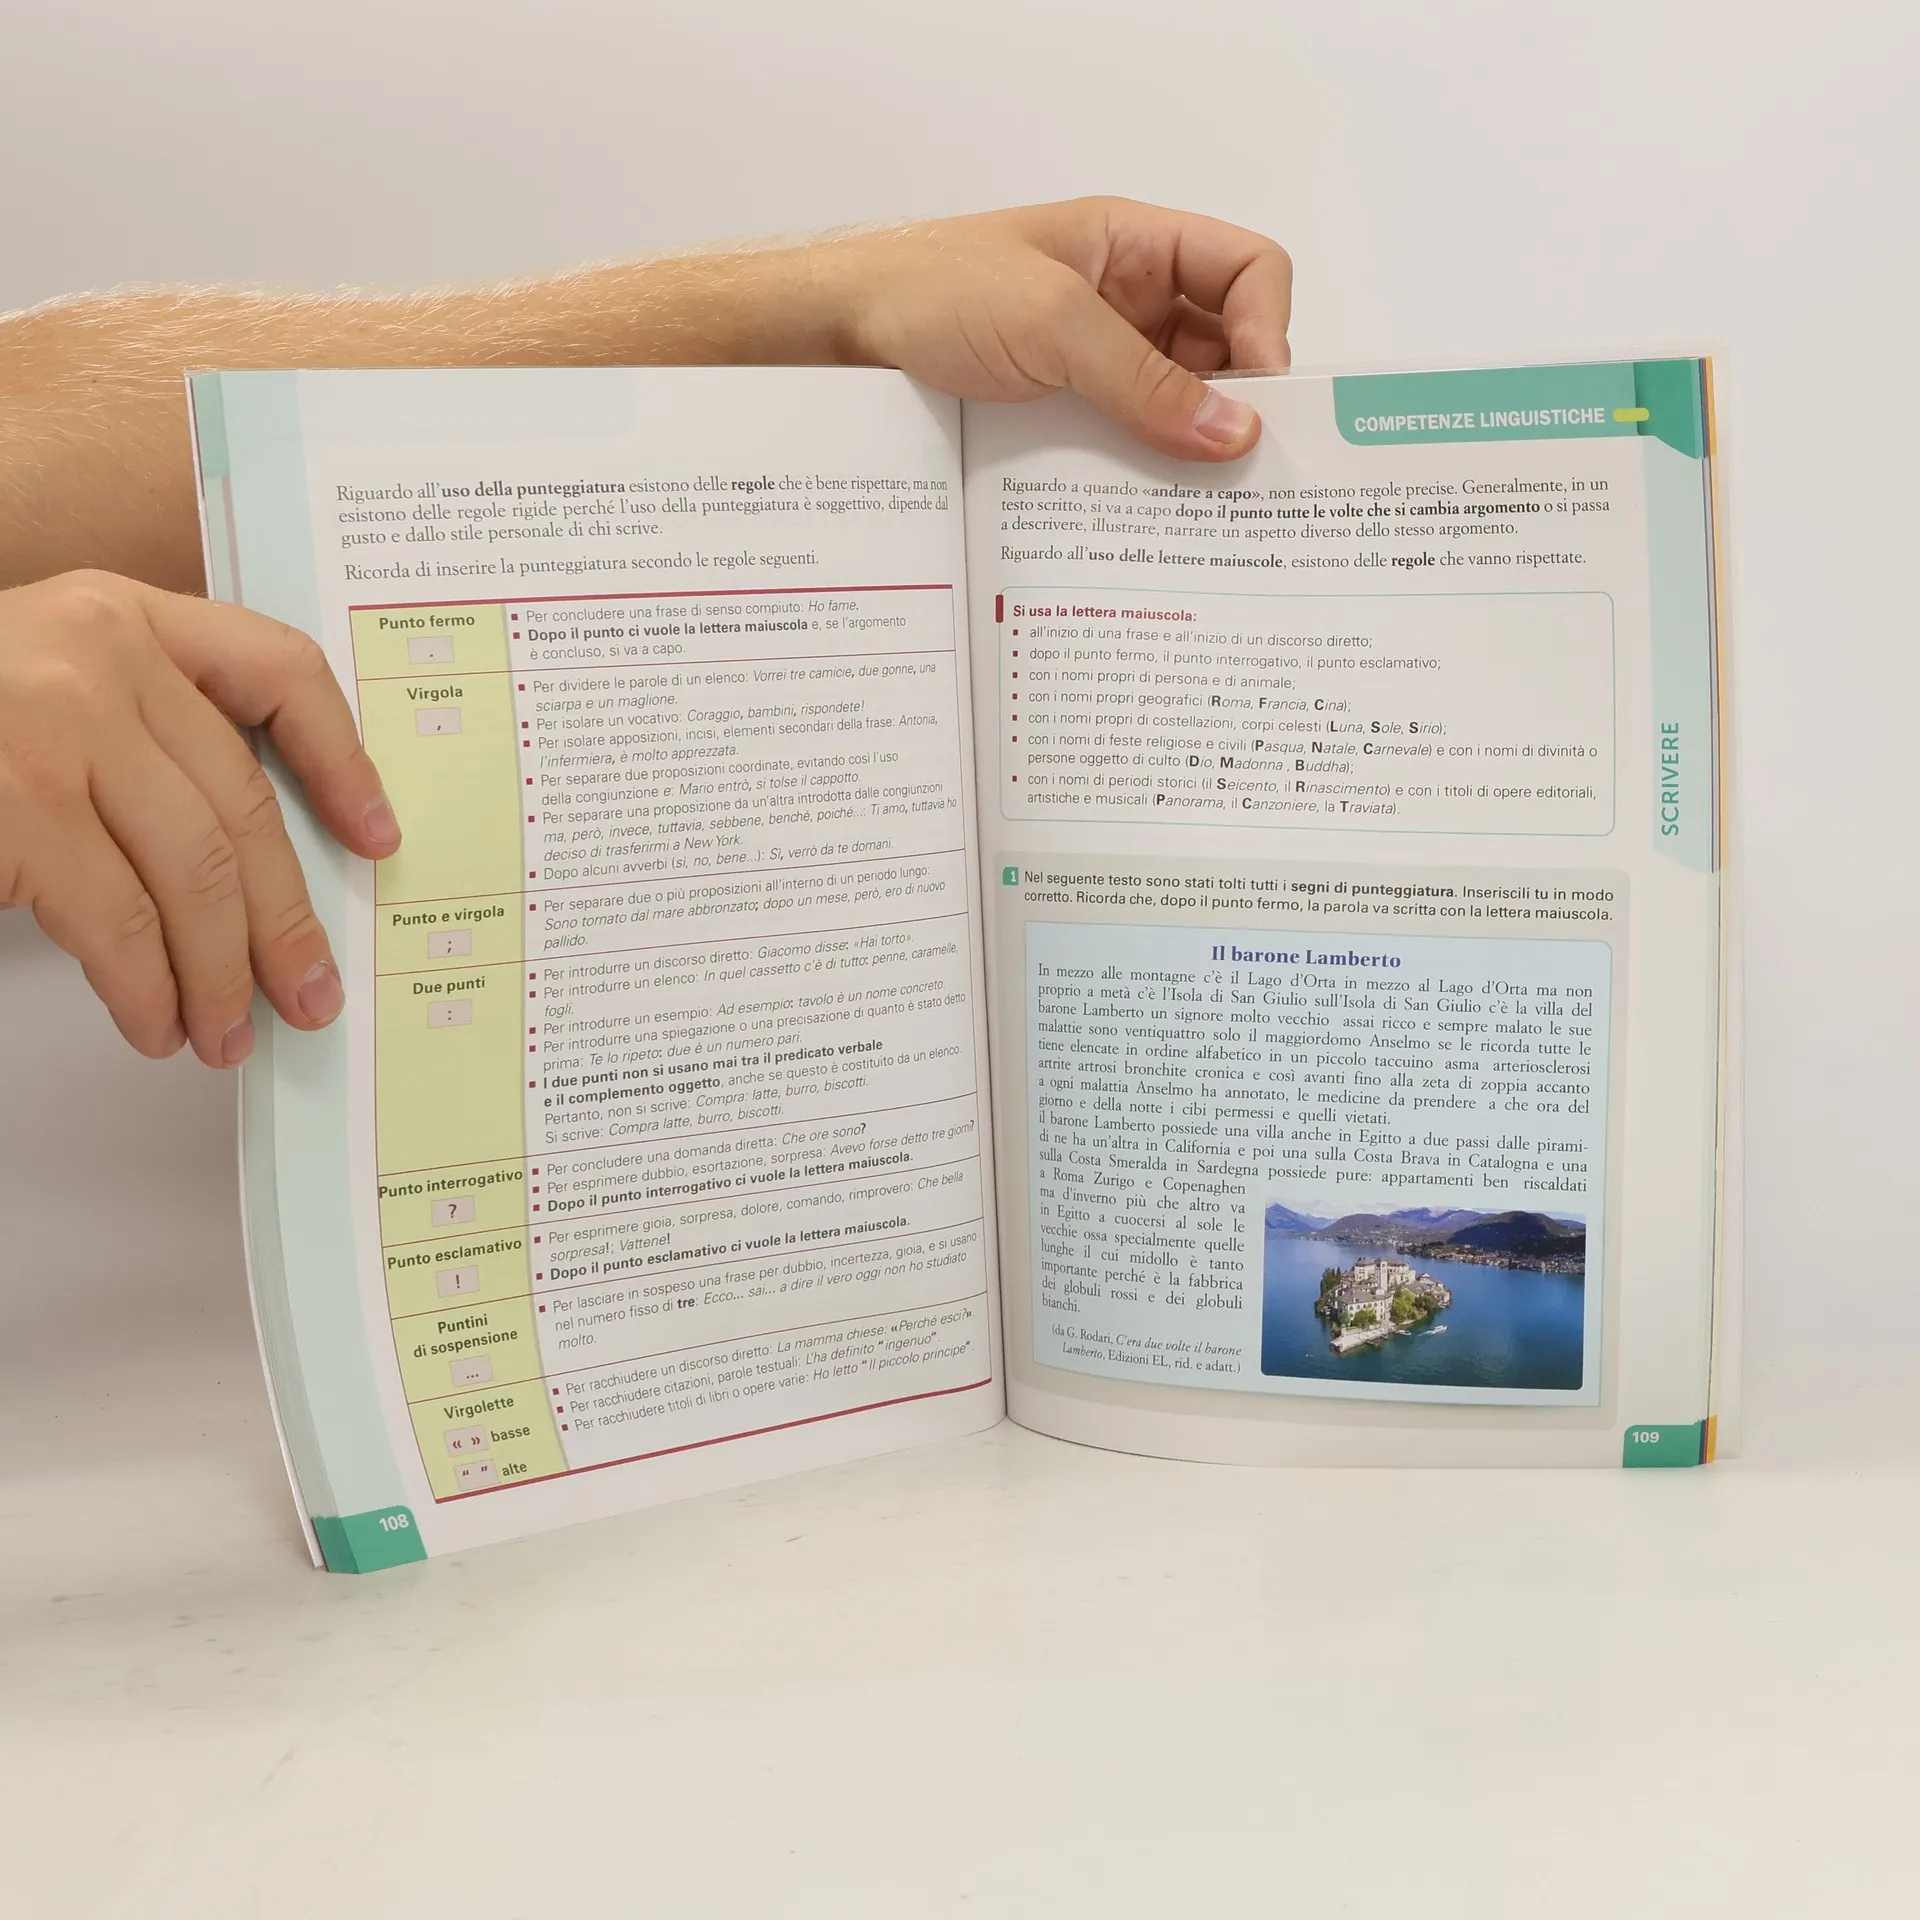 Riguardo all'uso della punteggiatura esistono delle regole che è bene rispettare, ma non
esistono delle regole rigide perché l'uso della punteggiatura è soggettivo, dipende dal
gusto e dallo stile personale di chi scrive.
Ricorda di inserire la punteggiatura secondo le regole seguenti.
Punto fermo
.
▪ Per concludere una frase di senso compiuto: Ho fame.
▪ Dopo il punto ci vuole la lettera maiuscola e, se l'argomento
è concluso, si va a capo.
Virgola
,
▪ Per dividere le parole di un elenco: Vorrei tre camicie, due gonne, una
sciarpa e un maglione.
▪ Per isolare un vocativo: Coraggio, bambini, rispondete!
▪ Per isolare apposizioni, incisi, elementi secondari della frase: Antonia,
l'infermiera, è molto apprezzata.
▪ Per separare due proposizioni coordinate, evitando così l'uso
della congiunzione e: Mario entrò, si tolse il cappotto.
▪ Per separare una proposizione da un'altra introdotta dalle congiunzioni
ma, però, invece, tuttavia, sebbene, benché, poiché...: Ti amo, tuttavia ho
deciso di trasferirmi a New York.
▪ Dopo alcuni avverbi (sì, no, bene...): Sì, verrò da te domani.
Punto e virgola
;
▪ Per separare due o più proposizioni all'interno di un periodo lungo:
Sono tornato dal mare abbronzato; dopo un mese, però, ero di nuovo
pallido.
Due punti
:
▪ Per introdurre un discorso diretto: Giacomo disse: «Hai torto».
▪ Per introdurre un elenco: In quel cassetto c'è di tutto: penne, caramelle,
fogli.
▪ Per introdurre un esempio: Ad esempio: tavolo è un nome concreto.
▪ Per introdurre una spiegazione o una precisazione di quanto è stato detto
prima: Te lo ripeto: due è un numero pari.
▪ I due punti non si usano mai tra il predicato verbale
e il complemento oggetto, anche se questo è costituito da un elenco.
Pertanto, non si scrive: Compra: latte, burro, biscotti.
Si scrive: Compra latte, burro, biscotti.
Punto interrogativo
?
▪ Per concludere una domanda diretta: Che ore sono?
▪ Per esprimere dubbio, esortazione, sorpresa: Avevo forse detto tre giorni?
▪ Dopo il punto interrogativo ci vuole la lettera maiuscola.
Punto esclamativo
!
▪ Per esprimere gioia, sorpresa, dolore, comando, rimprovero: Che bella
sorpresa!; Vattene!
▪ Dopo il punto esclamativo ci vuole la lettera maiuscola.
Puntini
di sospensione
...
▪ Per lasciare in sospeso una frase per dubbio, incertezza, gioia, e si usano
nel numero fisso di tre: Ecco... sai... a dire il vero oggi non ho studiato
molto.
Virgolette
« » basse
“ ” alte
▪ Per racchiudere un discorso diretto: La mamma chiese: «Perché esci?».
▪ Per racchiudere citazioni, parole testuali: L'ha definito “ingenuo”.
▪ Per racchiudere titoli di libri o opere varie: Ho letto “Il piccolo principe”.
108
COMPETENZE LINGUISTICHE
Riguardo a quando «andare a capo», non esistono regole precise. Generalmente, in un
testo scritto, si va a capo dopo il punto tutte le volte che si cambia argomento o si passa
a descrivere, illustrare, narrare un aspetto diverso dello stesso argomento.
Riguardo all'uso delle lettere maiuscole, esistono delle regole che vanno rispettate.
Si usa la lettera maiuscola:
▪ all'inizio di una frase e all'inizio di un discorso diretto;
▪ dopo il punto fermo, il punto interrogativo, il punto esclamativo;
▪ con i nomi propri di persona e di animale;
▪ con i nomi propri geografici (Roma, Francia, Cina);
▪ con i nomi propri di costellazioni, corpi celesti (Luna, Sole, Sirio);
▪ con i nomi di feste religiose e civili (Pasqua, Natale, Carnevale) e con i nomi di divinità o
persone oggetto di culto (Dio, Madonna , Buddha);
▪ con i nomi di periodi storici (il Seicento, il Rinascimento) e con i titoli di opere editoriali,
artistiche e musicali (Panorama, il Canzoniere, la Traviata).
SCRIVERE
1 Nel seguente testo sono stati tolti tutti i segni di punteggiatura. Inseriscili tu in modo
corretto. Ricorda che, dopo il punto fermo, la parola va scritta con la lettera maiuscola.
Il barone Lamberto
In mezzo alle montagne c'è il Lago d'Orta in mezzo al Lago d'Orta ma non
proprio a metà c'è l'Isola di San Giulio sull'Isola di San Giulio c'è la villa del
barone Lamberto un signore molto vecchio assai ricco e sempre malato le sue
malattie sono ventiquattro solo il maggiordomo Anselmo se le ricorda tutte le
tiene elencate in ordine alfabetico in un piccolo taccuino asma arteriosclerosi
artrite artrosi bronchite cronica e così avanti fino alla zeta di zoppia accanto
a ogni malattia Anselmo ha annotato, le medicine da prendere a che ora del
giorno e della notte i cibi permessi e quelli vietati.
il barone Lamberto possiede una villa anche in Egitto a due passi dalle pirami-
di ne ha un'altra in California e poi una sulla Costa Brava in Catalogna e una
sulla Costa Smeralda in Sardegna possiede pure: appartamenti ben riscaldati
a Roma Zurigo e Copenaghen
ma d'inverno più che altro va
in Egitto a cuocersi al sole le
vecchie ossa specialmente quelle
lunghe il cui midollo è tanto
importante perché è la fabbrica
dei globuli rossi e dei globuli
bianchi.
(da G. Rodari, C'era due volte il barone
Lamberto, Edizioni EL, rid. e adatt.)
109